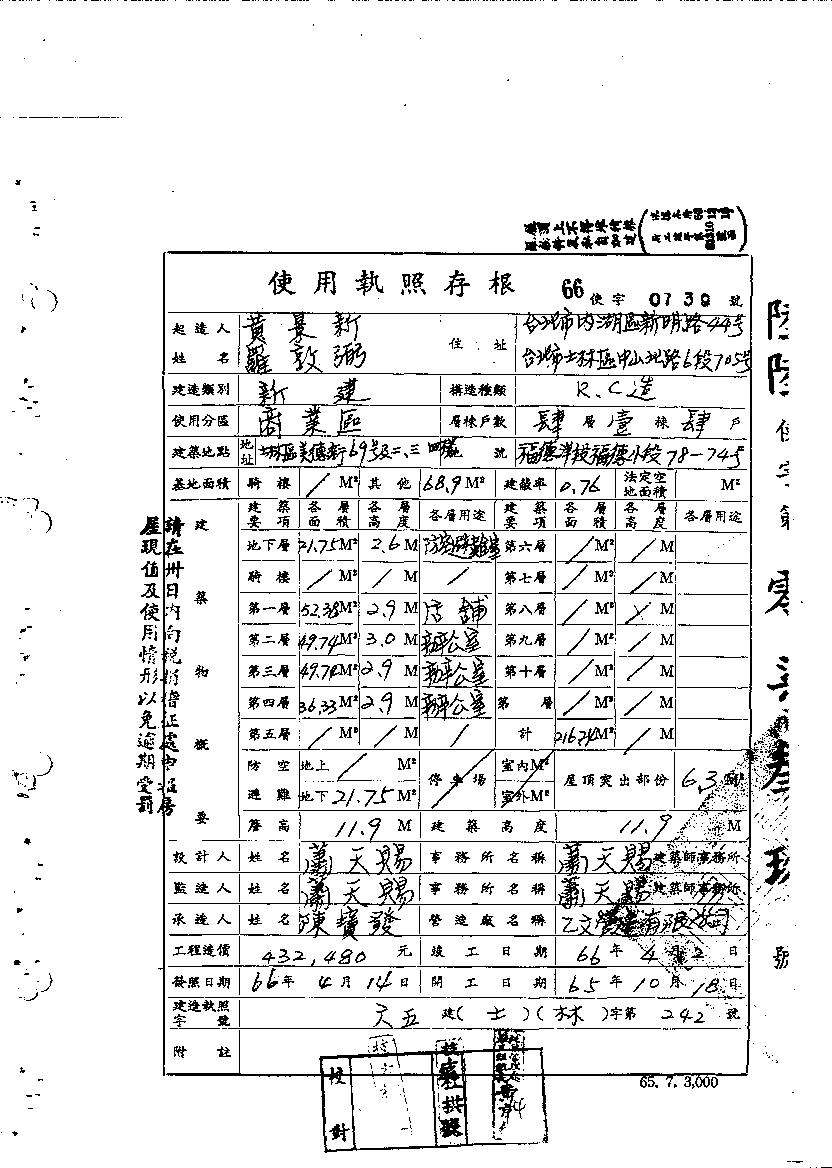 使用執照存根 66 使字 0730 號
起造人姓名 黃景新 羅敦弼 住址 台北市內湖區新明路44號 台北市士林區中山北路6段705號
建造類別 新建 構造種類 R.C造
使用分區 商業區 層棟戶數 肆層壹棟肆戶
建築地點 地址 士林區美德街69號及二、三、四樓 地號 福德洋段福德小段78-745
基地面積 騎樓 / M² 其他 68.9 M² 建蔽率 0.76 法定空地面積 M²
建築要項 各層面積 各層高度 各層用途 建築要項 各層面積 各層高度 各層用途
地下層 21.75 M² 2.6 M 防空避難室 第六層 / M² / M
騎樓 / M² / M / 第七層 / M² / M
第一層 52.38 M² 2.9 M 店舖 第八層 / M² / M
第二層 49.74 M² 3.0 M 辦公室 第九層 / M² / M
第三層 49.74 M² 2.9 M 辦公室 第十層 / M² / M
第四層 36.33 M² 2.9 M 辦公室 第 層 / M² / M
第五層 / M² / M / 計 216.24 M² / M
建築物概要
防空避難 地上 / M² 地下 21.75 M² 停車場 室內 M² 室外 M² 屋頂突出部份 6.3 M²
簷高 11.9 M 建築高度 11.9 M
設計人 姓名 蕭天賜 事務所名稱 蕭天賜建築師事務所
監造人 姓名 蕭天賜 事務所名稱 蕭天賜建築師事務所
承造人 姓名 陳寶發 營造廠名稱 乙文營造有限公司
工程造價 432,480 元 竣工日期 66年4月2日
發照日期 66年4月14日 開工日期 65年10月18日
建造執照字號 六五 建(士)(林)字第 242 號
附註
65. 7. 3,000
校對
請在卅日內向稅捐稽征處申報房
屋現值及使用情形以免逾期受罰
使字第零 號